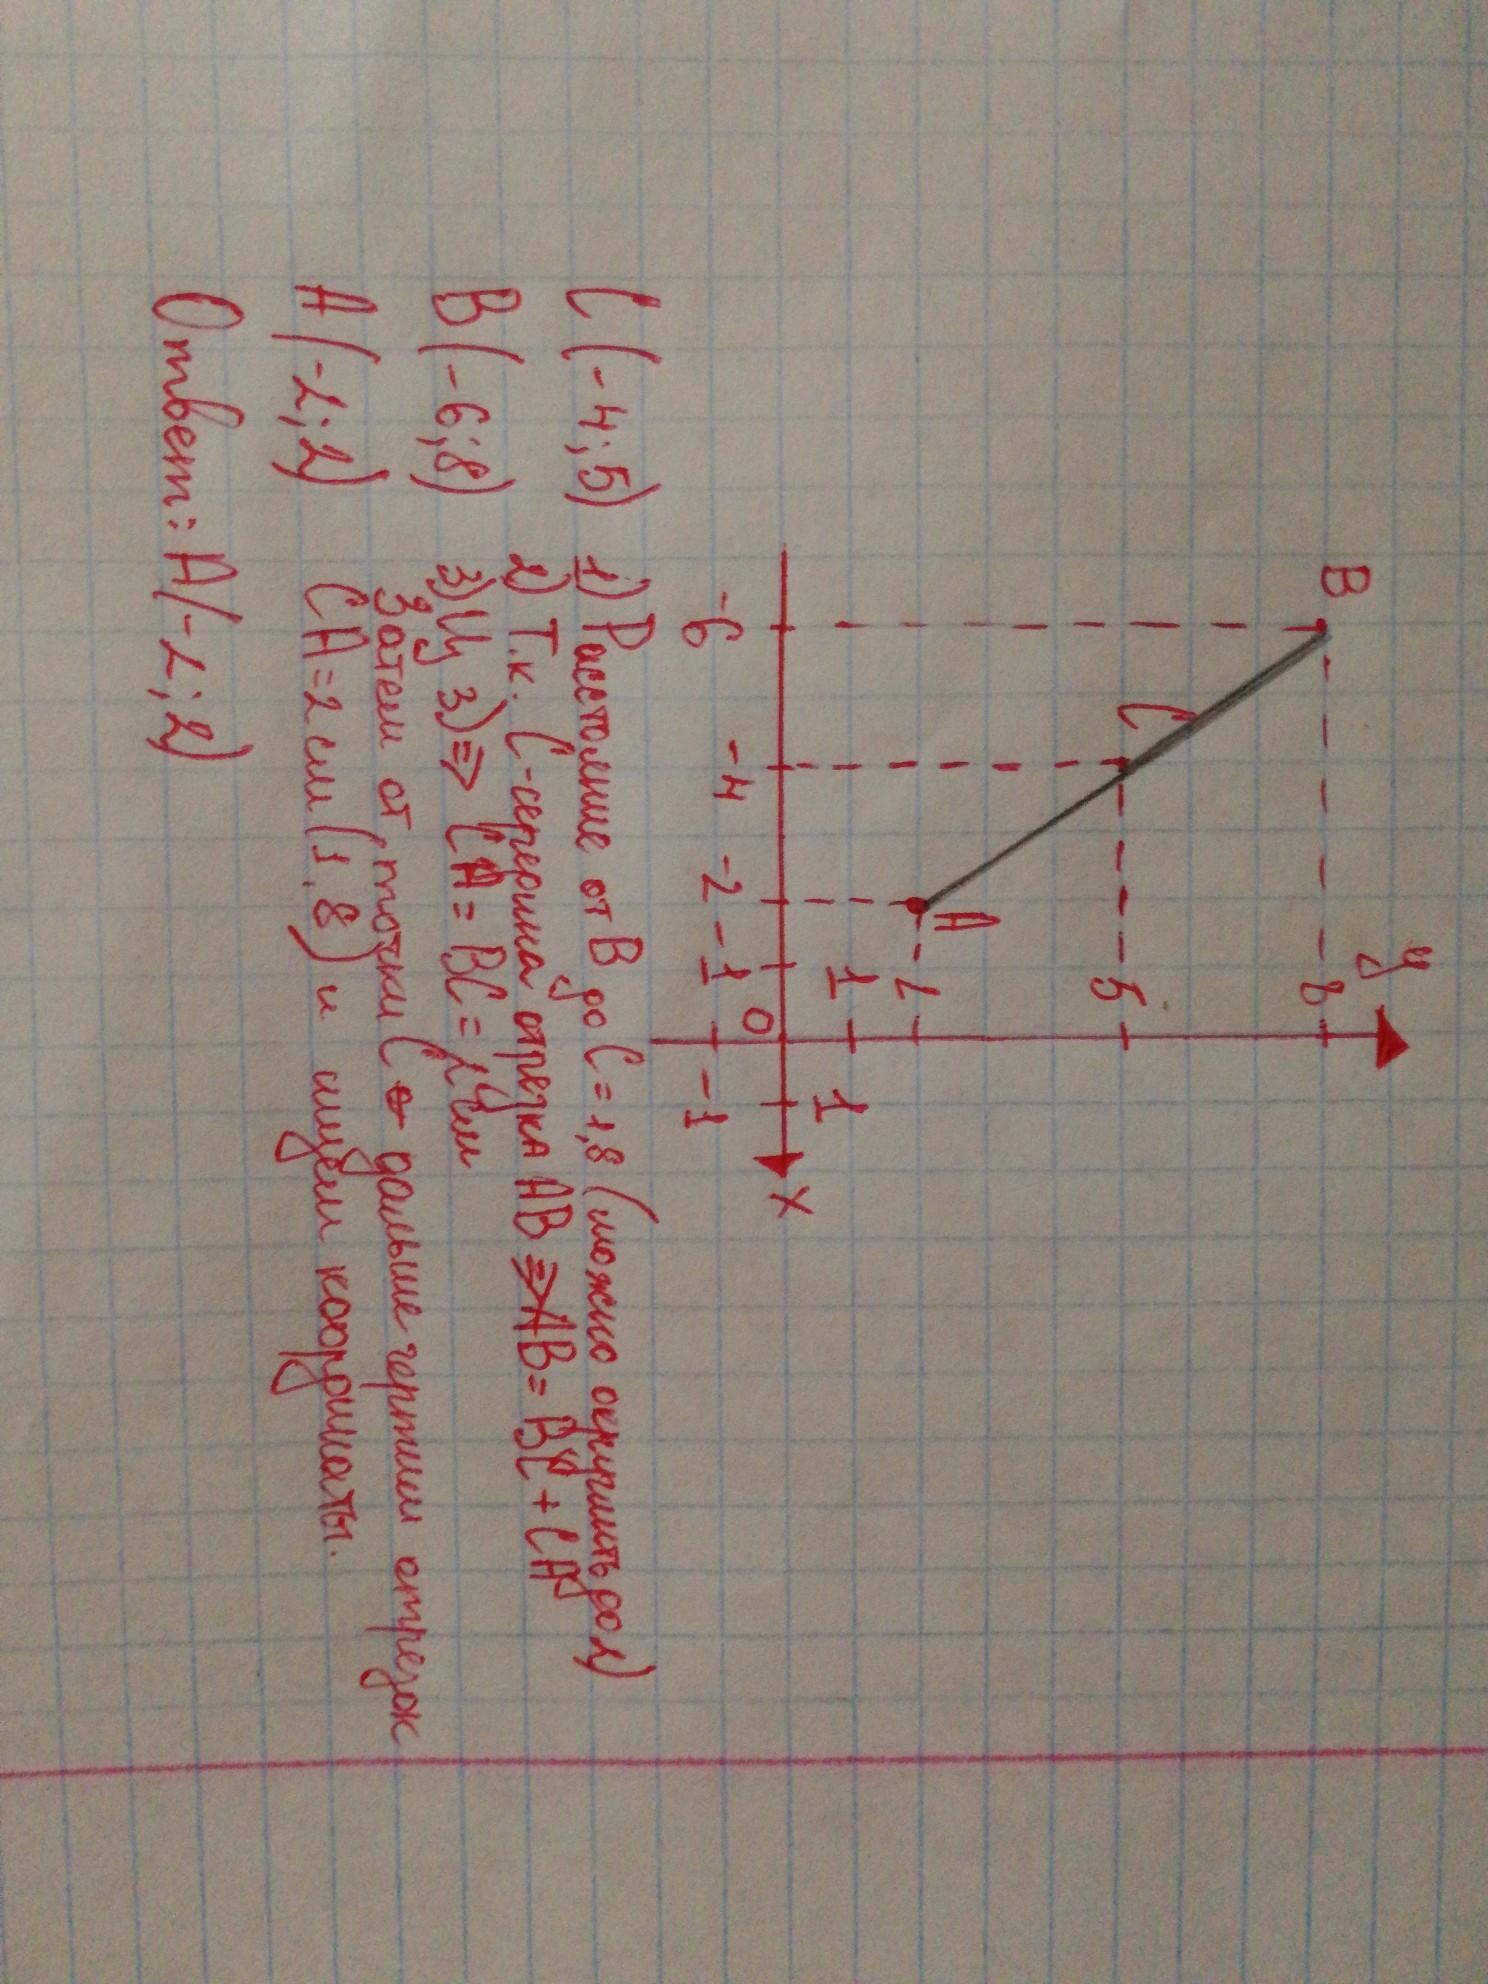 y
B
8
C
5
A
2
1
1
-6
-4
-2
-1
0
-1
x
C (-4; 5)
B (-6; 8)
A (-2; 2)
Ответ: A (-2; 2)
1) Расстояние от B до C = 1,8 (можно округлить до 2)
2) Т.к. C - середина отрезка AB => AB = BC + CA
3) Из 3) => CA = BC = 2 см
Затем от точки C дальше чертим отрезок
CA = 2 см (1,8) и ищем координаты.